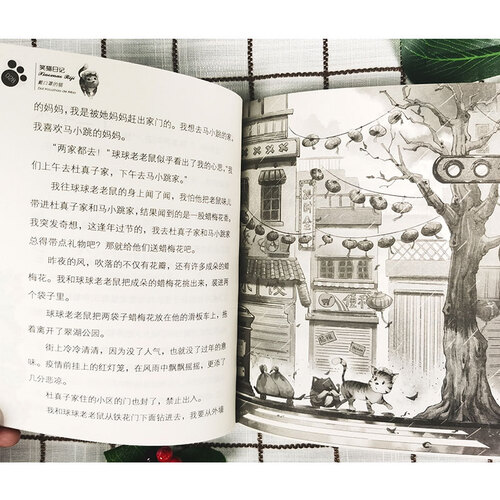 笑猫日记
Xiaomao Riji
戴口罩的猫
的妈妈，我是被她妈妈赶出家门的。我想去马小跳的家，
我喜欢马小跳的妈妈。
“两家都去！”球球老老鼠似乎看出了我的心思，“我
们上午去杜真子家，下午去马小跳家。”
我往球球老老鼠的身上闻了闻，我怕他把老鼠味儿
带进杜真子家和马小跳家，结果闻到的是一股蜡梅花香。
我突发奇想，这逢年过节的，我去杜真子家和马小跳家
总得带点礼物吧？那就给他们送蜡梅花吧。
昨夜的风，吹落的不仅有花瓣，还有许多成朵的蜡
梅花。我和球球老老鼠把成朵的蜡梅花挑出来，装进两
个袋子里。
球球老老鼠把两袋子蜡梅花放在他的滑板车上，拖
着离开了翠湖公园。
街上冷冷清清，因为没了人气，也就没了过年的意
味。疫情前挂上的红灯笼，在风雨中飘飘摇摇，更添了
几分悲凉。
杜真子家住的小区的门也封了，禁止出入。
我和球球老老鼠从铁花门下面钻进去，我要从外墙